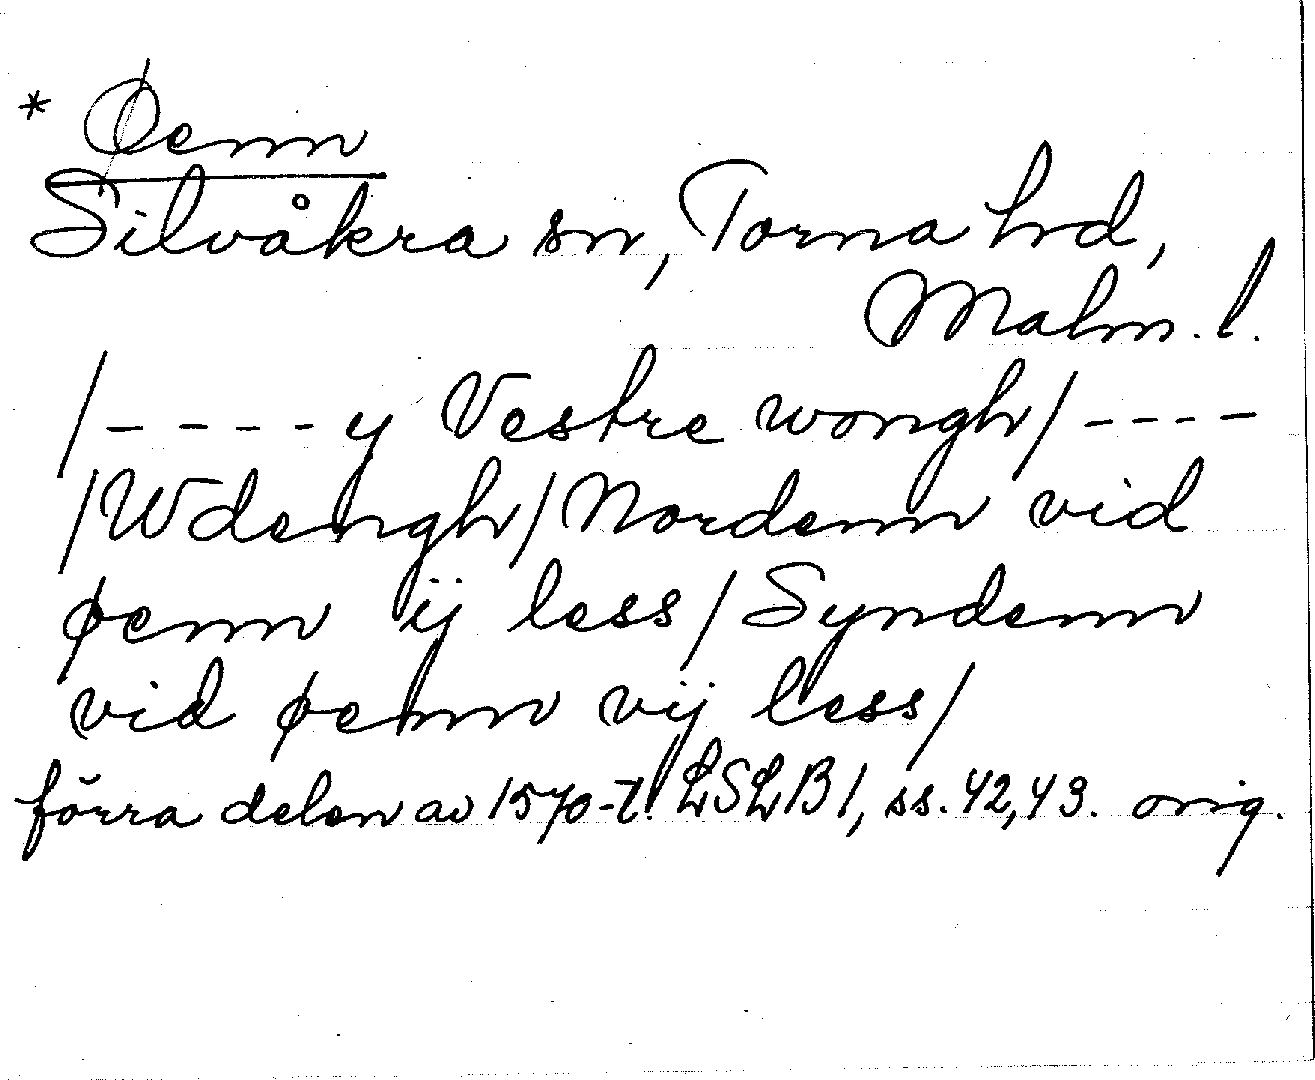 * Øenn
Silvåkra sn, Torna hd,
Malm. l.
/- - - - - y Vestre wongh/ - - - -
/Wdengh/ Nordenn vid
øenn ij less/ Syndenn
vid øenn vij less/
förra delen av 1570-t. LSLB 1, ss. 42, 43. orig.